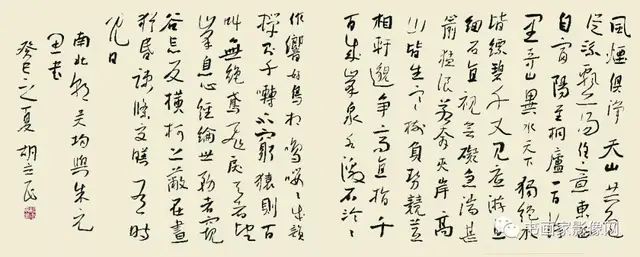 風煙俱淨天山共色
從流飄蕩任意東西
自富陽至桐廬一百許
里奇山異水天下獨絕水
皆縹碧千丈見底游魚
細石直視無礙急湍甚
箭猛浪若奔夾岸高
山皆生寒樹負勢競
相軒邈爭高直指千
百成峯泉水激石泠泠
作響好鳥相鳴嚶嚶成韻
千囀不窮猿則百
叫無絕鳶飛戾天者望
峯息心經綸世務者窺
谷忘反橫柯上蔽在晝
猶昏疎條交映有時
見日
南北朝吳均與朱元
思書
癸巳之夏胡立民
书画家影像网